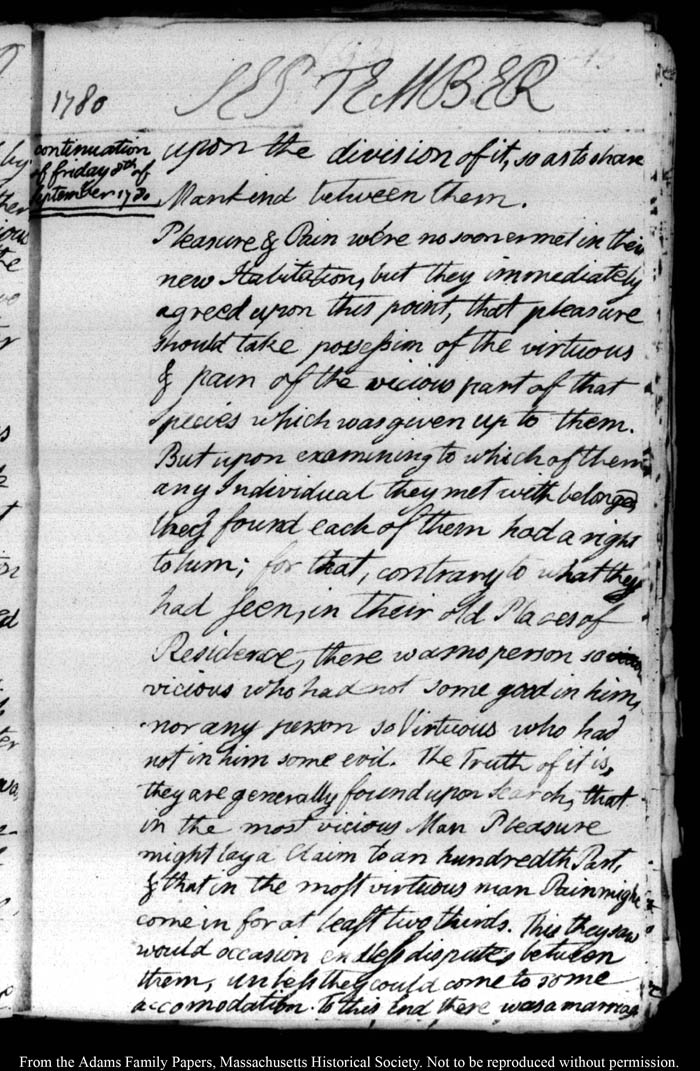 1780 SEPTEMBER
continuation
of friday 8th of
September 1780
upon the division of it, so as to share
Mankind between them.
Pleasure & Pain were no sooner met in their
new Habitation, but they immediately
agreed upon this point, that pleasure
should take possession of the virtuous
& pain of the vicious part of that
species which was given up to them.
But upon examining to which of them
any Individual they met with belonged
they found each of them had a right
to him; for that, contrary to what they
had seen, in their old Places of
Residence, there was no person so
vicious who had not some good in him,
nor any person so Virtuous who had
not in him some evil. The Truth of it is,
they are generally found upon Search, that
in the most vicious Man Pleasure
might lay a Claim to an hundredth Part,
& that in the most virtuous man Pain might
come in for at least two thirds. This they saw
would occasion endless disputes between
them, unless they could come to some
accomodation. to this End there was a marriag
From the Adams Family Papers, Massachusetts Historical Society. Not to be reproduced without permission.